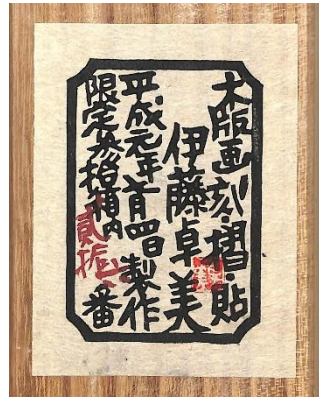 木版画刻・摺・貼
伊藤卓美
平成元年 四日製作
限定 拾 内貳拾 番